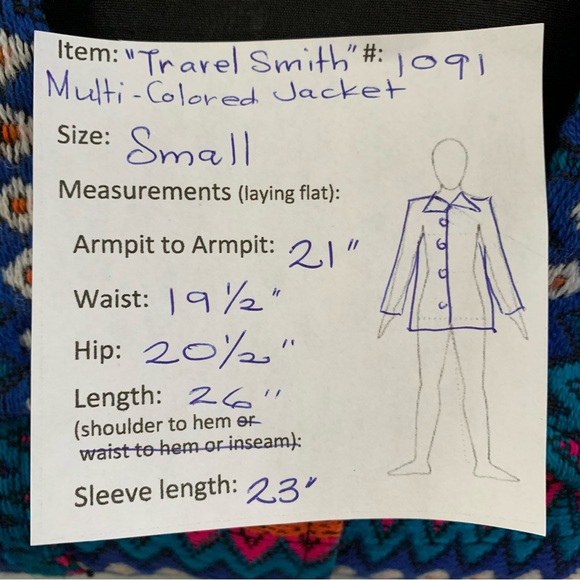 Item: "Travel Smith" #: 1091
Multi-Colored Jacket
Size: Small
Measurements (laying flat):
Armpit to Armpit: 21"
Waist: 19 1/2"
Hip: 20 1/2"
Length: 26"
(shoulder to hem or
waist to hem or inseam):
Sleeve length: 23"